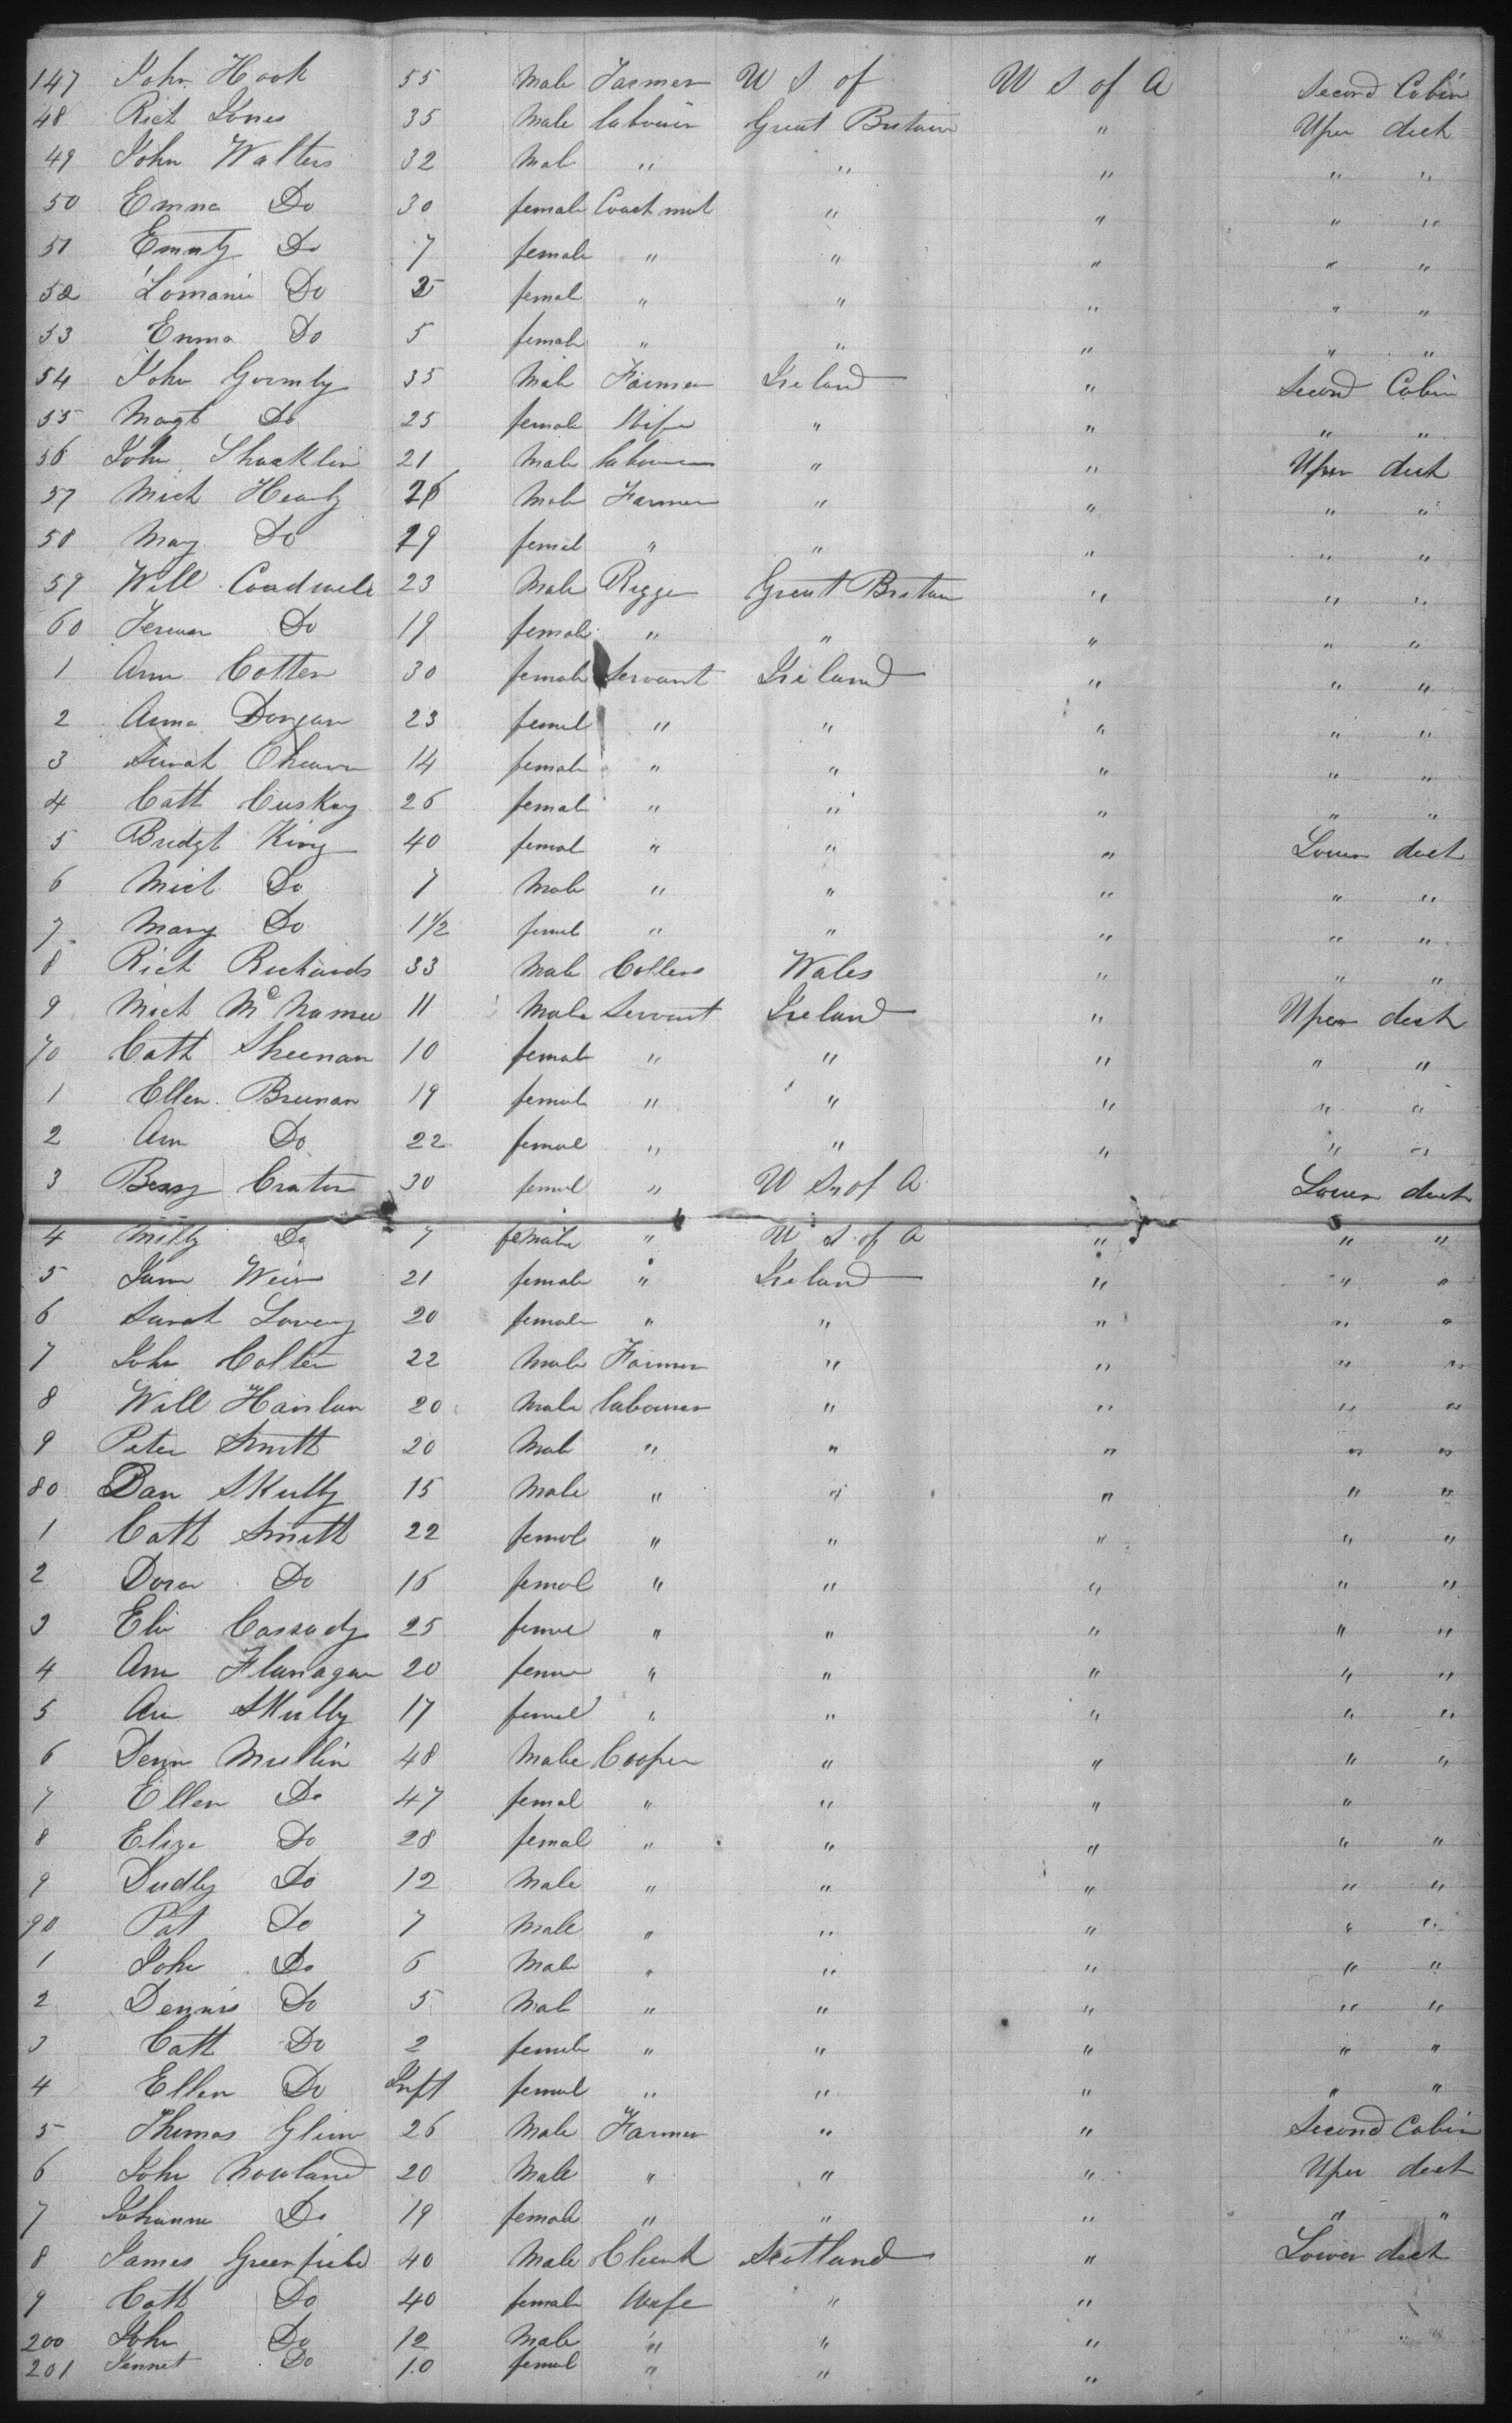 147 John Hook 55 Male Farmer U S of U S of A Second Cabin
48 Rich Jones 35 Male labourer Great Britain " Uper deck
49 John Walters 32 Mal " " " " "
50 Emma Do 30 female " " " "
51 Do 7 female " " " " "
52 Do femal " " " " "
53 Emma Do 5 female " " " " "
54 John Gormly 35 Male Farmer Ireland " Second Cabin
55 Margt Do 25 female Wife " " " "
56 John Shacklin 21 Male labourer " " Uper deck
57 Mich Hearty 26 Male Farmer " " " "
58 Mary Do 29 femal " " " " "
59 Will Coadwell 23 Male Rigger Great Britain " " "
60 Do 19 female " " " " "
1 Ann Cotter 30 female Servant Ireland " " "
2 Anna Dongan 23 femal " " " " "
3 Sarah 14 female " " " " "
4 Cath Cuskey 26 femal " " " " "
5 Bridgt King 40 femal " " " Lower deck
6 Mich Do 7 Male " " " " "
7 Mary Do 1 1/2 femal " " " " "
8 Rich Richards 33 Male Wales " " "
9 Mich McNamee 11 Male Servant Ireland " Uper deck
70 Cath Sheenan 10 female " " " " "
1 Ellen Brennan 19 femal " " " " "
2 Ann Do 22 femal " " " " "
3 Bessy Crater 30 femal " U S of A Lower deck
4 Milly Do 7 female " U S of A " " "
5 Jane Weir 21 female " Ireland " " "
6 Sarah Lavery 20 female " " " " "
7 John Colter 22 Male Farmer " " " "
8 Will Hanlan 20 Male labourer " " " "
9 Peter Smith 20 Male " " " " "
80 Dan Skully 15 Male " " " " "
1 Cath Smith 22 femal " " " " "
2 Dora Do 16 femal " " " " "
3 Eliz Cassady 25 femal " " " " "
4 Ann Flanagan 20 femal " " " " "
5 Ann Skully 17 femal " " " " "
6 Denn Mullin 48 Male Cooper " " " "
7 Ellen Do 47 femal " " " "
8 Eliza Do 28 femal " " " " "
9 Dudly Do 12 Male " " " " "
90 Pat Do 7 Male " " " " "
1 John Do 6 Male " " " " "
2 Dennis Do 5 Male " " " " "
3 Cath Do 2 female " " " " "
4 Ellen Do Inft femal " " " " "
5 Thomas Glinn 26 Male Farmer " " Second Cabin
6 John Nowland 20 Male " " " Uper deck
7 Johanna Do 19 female " " " " "
8 James Greenfield 40 Male Clerk Scotland " Lower deck
9 Cath Do 40 female Wife " "
200 John Do 12 Male " " "
201 Jennet Do 10 femal " " "